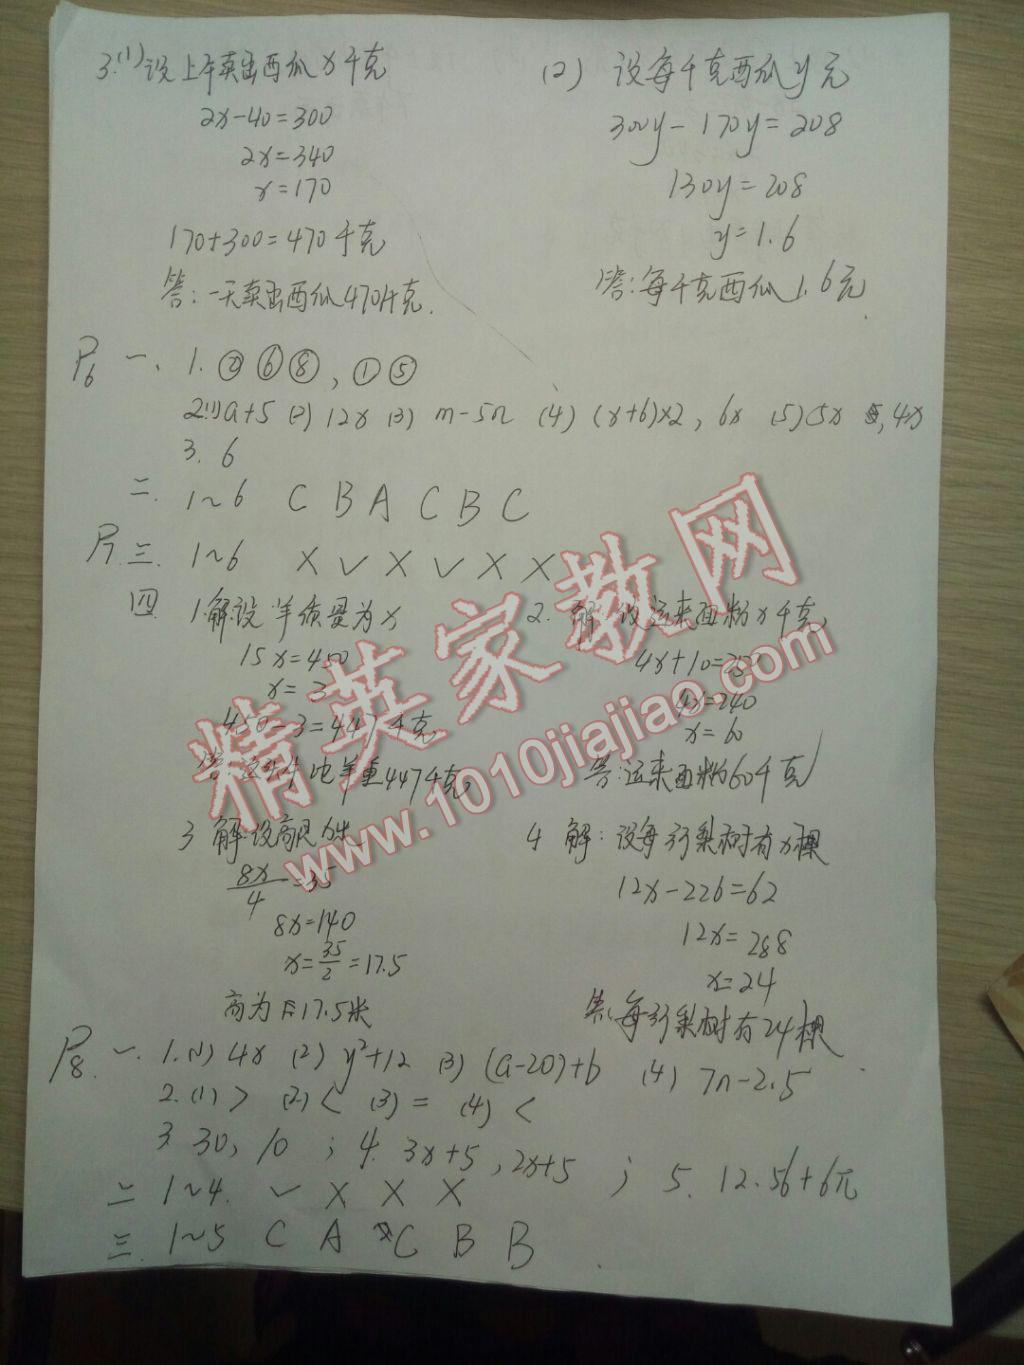 3.(1)设上午卖出西瓜x千克
2x-40=300
2x=340
x=170
170+300=470千克
答:一天卖出西瓜470千克.
(2) 设每千克西瓜y元
300y-170y=208
130y=208
y=1.6
答:每千克西瓜1.6元.
P6 一、1. ②⑥⑧,①⑤
2.(1)a+5 (2)12x (3) m-5n (4) (x+6)×2, 6x (5)5x, 4x
3. 6
二. 1~6 C B A C B C
P7 三. 1~6 × ✓ × ✓ × ×
四 1.解设羊质量为x
15x=450
x=3
450-3=447千克
羊重447千克
2. 解:设运来面粉x千克
4x+10=250
4x=240
x=60
答:运来面粉60千克
3 解设高为x米
8x/4=35
8x=140
x=35/2=17.5
高为17.5米
4 解:设每行梨树有x棵
12x-226=62
12x=288
x=24
答:每行梨树有24棵.
P8. 一. 1.(1) 4x (2) y²+12 (3) (a-20)+b (4) 7n-2.5
2.(1) > (2) < (3) = (4) <
3. 30, 10 ; 4. 3x+5, 2x+5 ; 5. 12.56+6π
二 1~4. ✓ × × ×
三. 1~5 C A C B B.
精英家教网
www.1010jiajiao.com